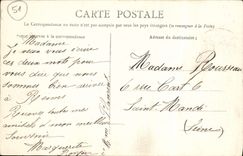 51
CARTE POSTALE
La Correspondance au recto n'est pas acceptée par tous les pays étrangers (se renseigner à la Poste)
CORRESPONDANCE
Adresse du destinataire
Madame
Je vous envoie
ces deux mots pour
vous dire que nous
sommes bien arrivés
à Reims
Recevez toutes mes
amitiés d'un meilleur
Souvenir
Marguerite
Madame Rousseau
6 rue
6
Saint Mandé
Seine